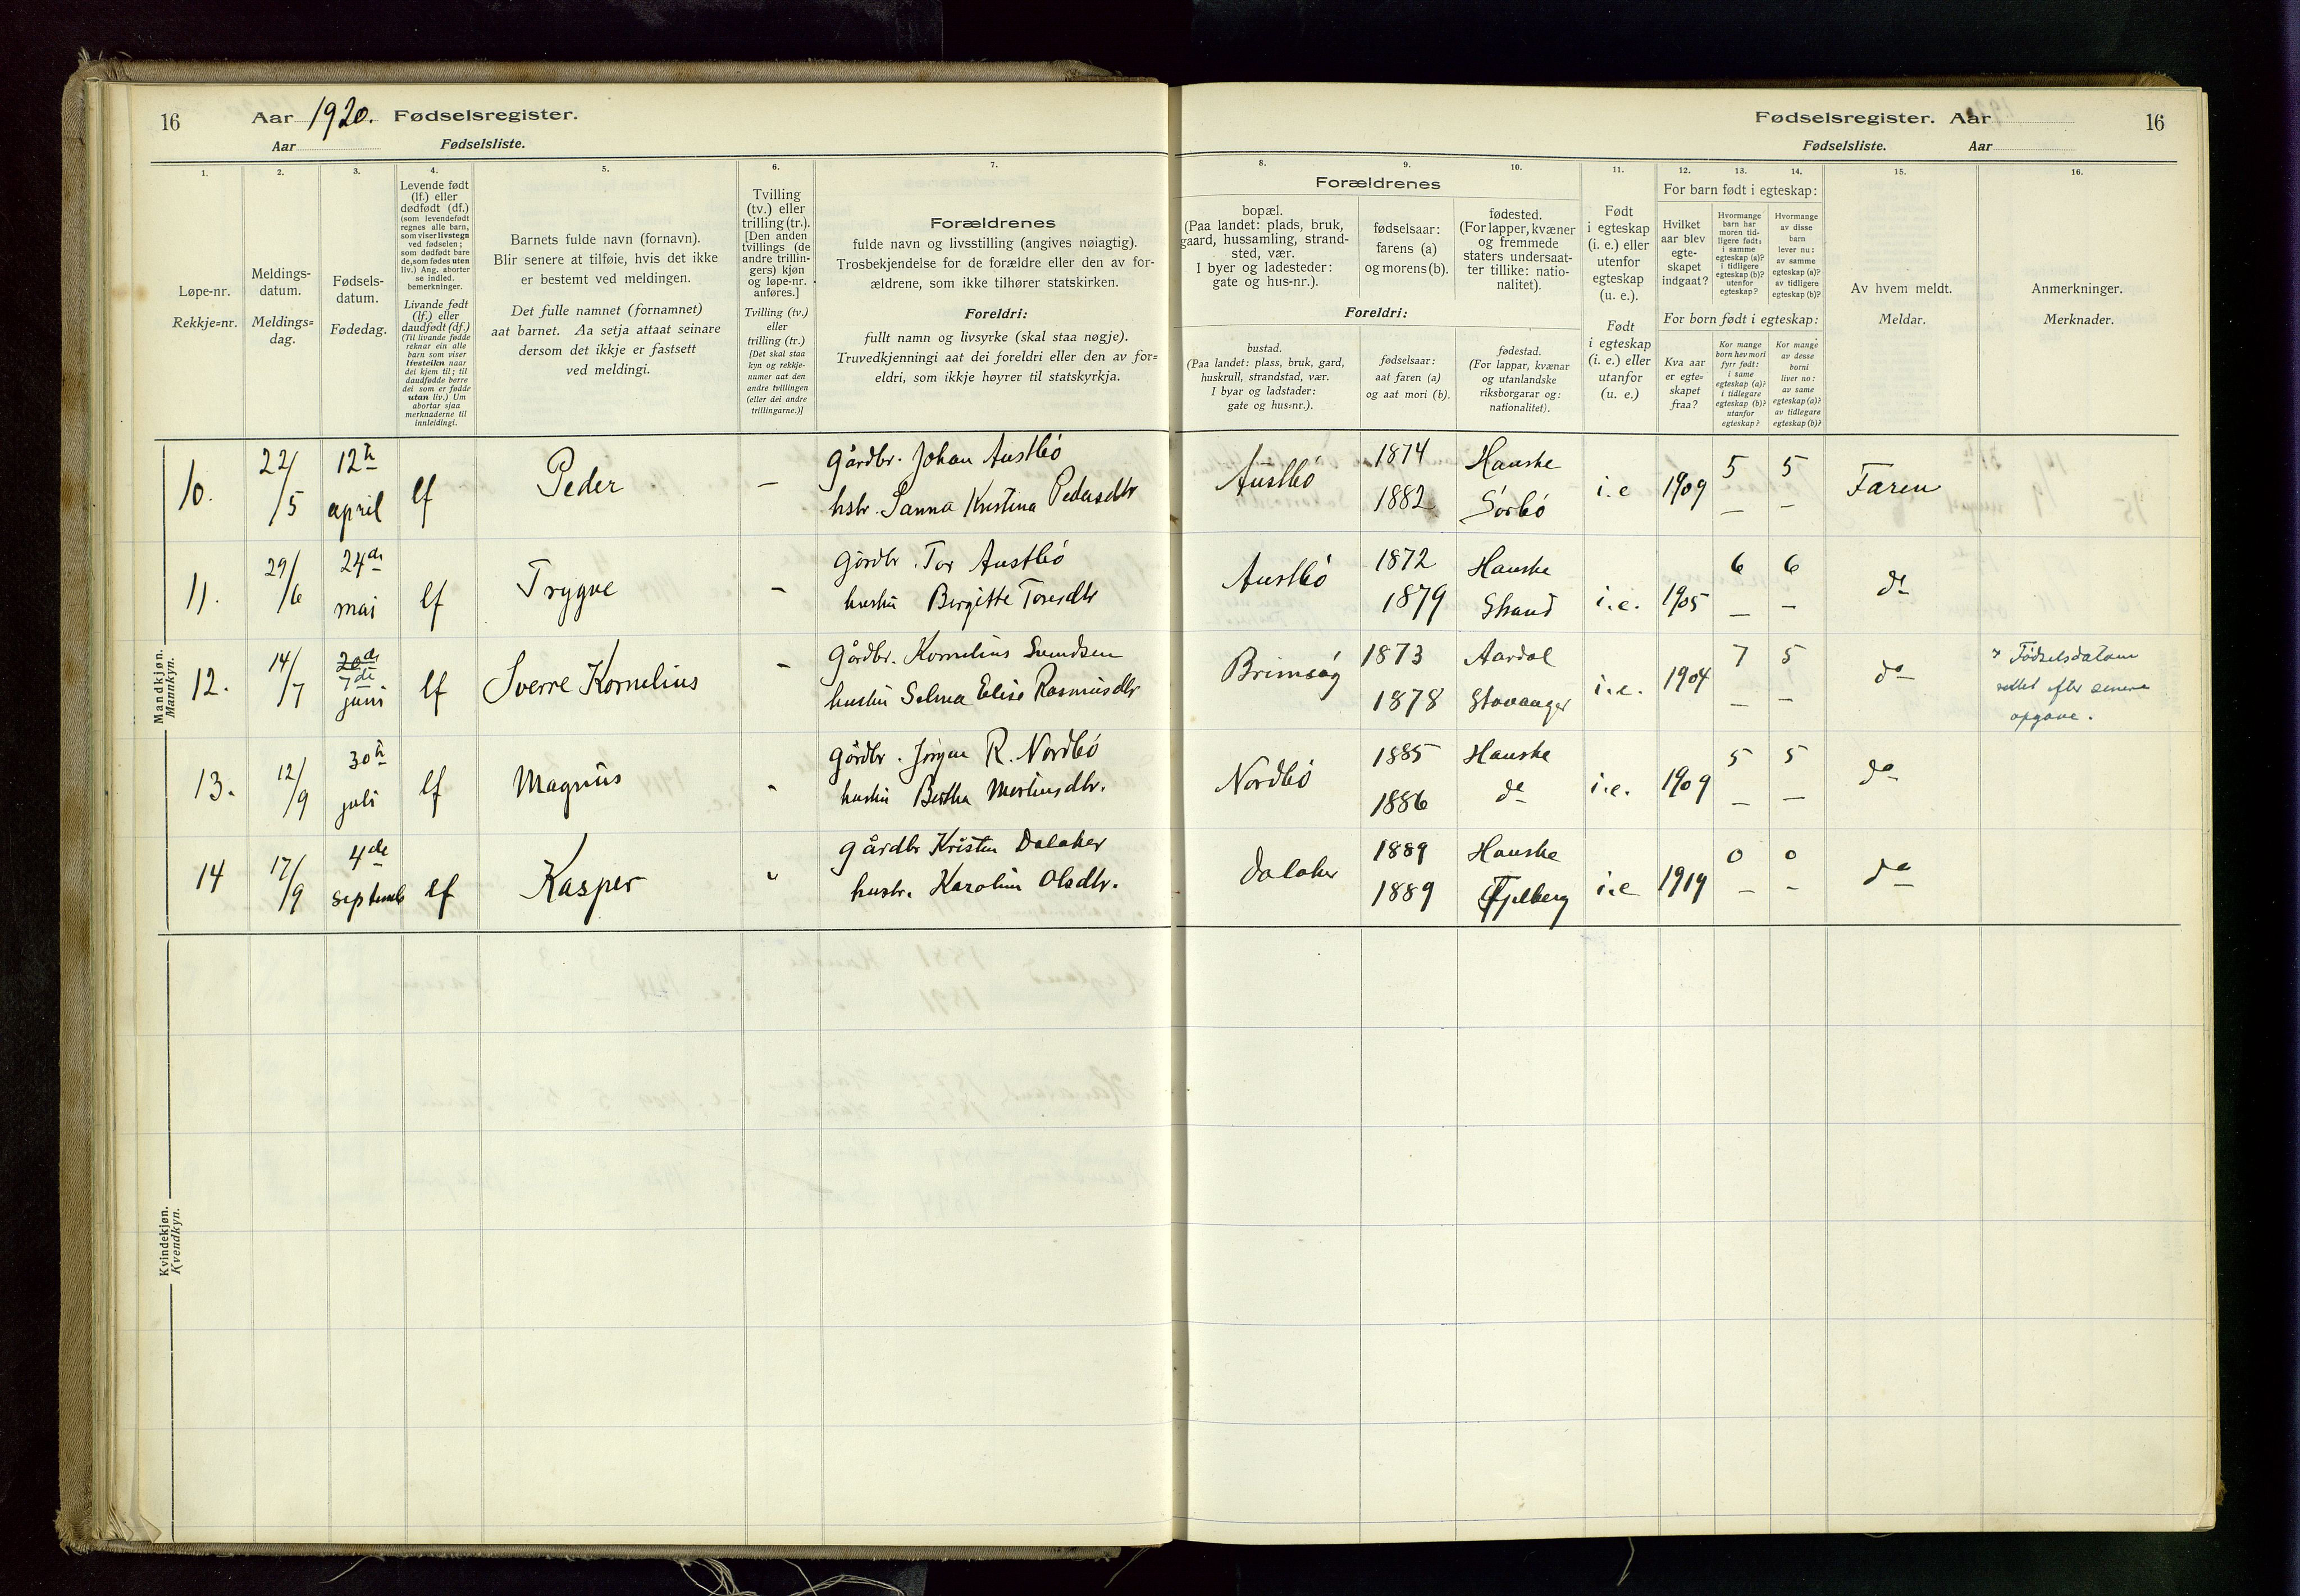 16 Aar 1920. Fødselsregister.
Aar Fødselsliste.
Fødselsregister. Aar 16
Fødselsliste. Aar
1. 2. 3. 4. 5. 6. 7. 8. 9. 10. 11. 12. 13. 14. 15. 16.
Løpe-nr.
Rekkje=nr.
Meldings-
datum.
Meldings=
dag.
Fødsels-
datum.
Fødedag.
Levende født
(lf.) eller
dødfødt (df.)
(som levendefødt
regnes alle barn,
som viser livstegn
ved fødselen;
som dødfødt bare
de, som fødes uten
liv.) Ang. aborter
se indled.
bemerkninger.
Livande født
(lf.) eller
daudfødt (df.)
(Til livande fødde
reknar ein alle
barn som viser
livsteikn naar
dei kjem til; til
daudfødde berre
dei som er fødde
utan liv.) Um
abortar sjaa
merknaderne til
innleidingi.
Barnets fulde navn (fornavn).
Blir senere at tilføie, hvis det ikke
er bestemt ved meldingen.
Det fulle namnet (fornamnet)
aat barnet. Aa setja attaat seinare
dersom det ikkje er fastsett
ved meldingi.
Tvilling
(tv.) eller
trilling (tr.).
[Den anden
tvillings (de
andre trillin-
gers) kjøn
og løpe-nr.
anføres.]
Tvilling (tv.)
eller
trilling (tr.)
[Det skal staa
kyn og rekkje-
numer aat den
andre tvillingen
(eller dei andre
trillingarne.)]
Forældrenes
fulde navn og livsstilling (angives nøiagtig).
Trosbekjendelse for de forældre eller den av for-
ældrene, som ikke tilhører statskirken.
Foreldri:
fullt namn og livsyrke (skal staa nøgje).
Truvedkjenningi aat dei foreldri eller den av for=
eldri, som ikkje høyrer til statskyrkja.
Forældrenes
bopæl.
(Paa landet: plads, bruk,
gaard, hussamling, strand-
sted, vær.
I byer og ladesteder:
gate og hus-nr.).
fødselsaar:
farens (a)
og morens (b).
fødested.
(For lapper, kvæner
og fremmede
staters undersaat-
ter tillike: natio-
nalitet).
Foreldri:
bustad.
(Paa landet: plass, bruk, gard,
huskrull, strandstad, vær.
I byar og ladstader:
gate og hus=nr.).
fødselsaar:
aat faren (a)
og aat mori (b).
fødestad.
(For lappar, kvænar
og utanlandske
riksborgarar og:
nationalitet).
Født
i egteskap
(i. e.) eller
utenfor
egteskap
(u. e.).
Født
i egteskap
(i. e.) eller
utanfor
(u. e.)
For barn født i egteskap:
Hvilket
aar blev
egte-
skapet
indgaat?
Hvormange
barn har
moren tid-
ligere født:
i samme
egteskap (a)?
i tidligere
egteskap (b)?
utenfor
egteskap?
Hvormange
av disse
barn
lever nu:
av samme
egteskap (a)?
av tidligere
egteskap (b)?
For born født i egteskap:
Kva aar
er egte=
skapet
fraa?
Kor mange
born hev mori
fyrr født:
i same
egteskap (a)?
i tidlegare
egteskap (b)?
utanfor
egteskap?
Kor mange
av desse
borni
liver no:
av same
egteskap (a)?
av tidlegare
egteskap (b)?
Av hvem meldt.
Meldar.
Anmerkninger.
Merknader.
Mandkjøn.
Mannkyn.
10. 22/5 12te april lf Peder – Gårdbr. Johan Austbó
hstr. Sanna Kristina Pedersdtr Austbó 1874 Hauske
1882 Sörbó i.e 1909 5 5 Faren
– –
11. 29/6 24de mai lf Trygve – Gårdbr. Tor Austbó
hustru Birgitte Toresdtr Austbó 1872 Hauske
1879 Strand i.e. 1905 6 6 do
– –
12. 14/7 20de 7de juni lf Sverre Kornelius – Gårdbr. Kornelius Svendsen
hustru Selma Elise Rasmusdtr Brimsøy 1873 Aardal
1878 Stavanger i.e. 1904 7 5 do
– –
Födselsdatum
rettet efter senere
opgave.
13. 12/9 30te juli lf Magnús " Gårdbr. Jörgen R. Nordbó
hustru Bertha Mortinsdtr. Nordbó 1885 Hauske
1886 do i.e. 1909 5 5 do
– –
14 17/9 4de septemb lf Kasper " Gårdbr Kristen Dalaker
hustr. Karolin Olsdtr. Dalaker 1889 Hauske
1889 Fjelberg i.e 1919 0 0 do
– –
Kvindekjøn.
Kvendkyn.